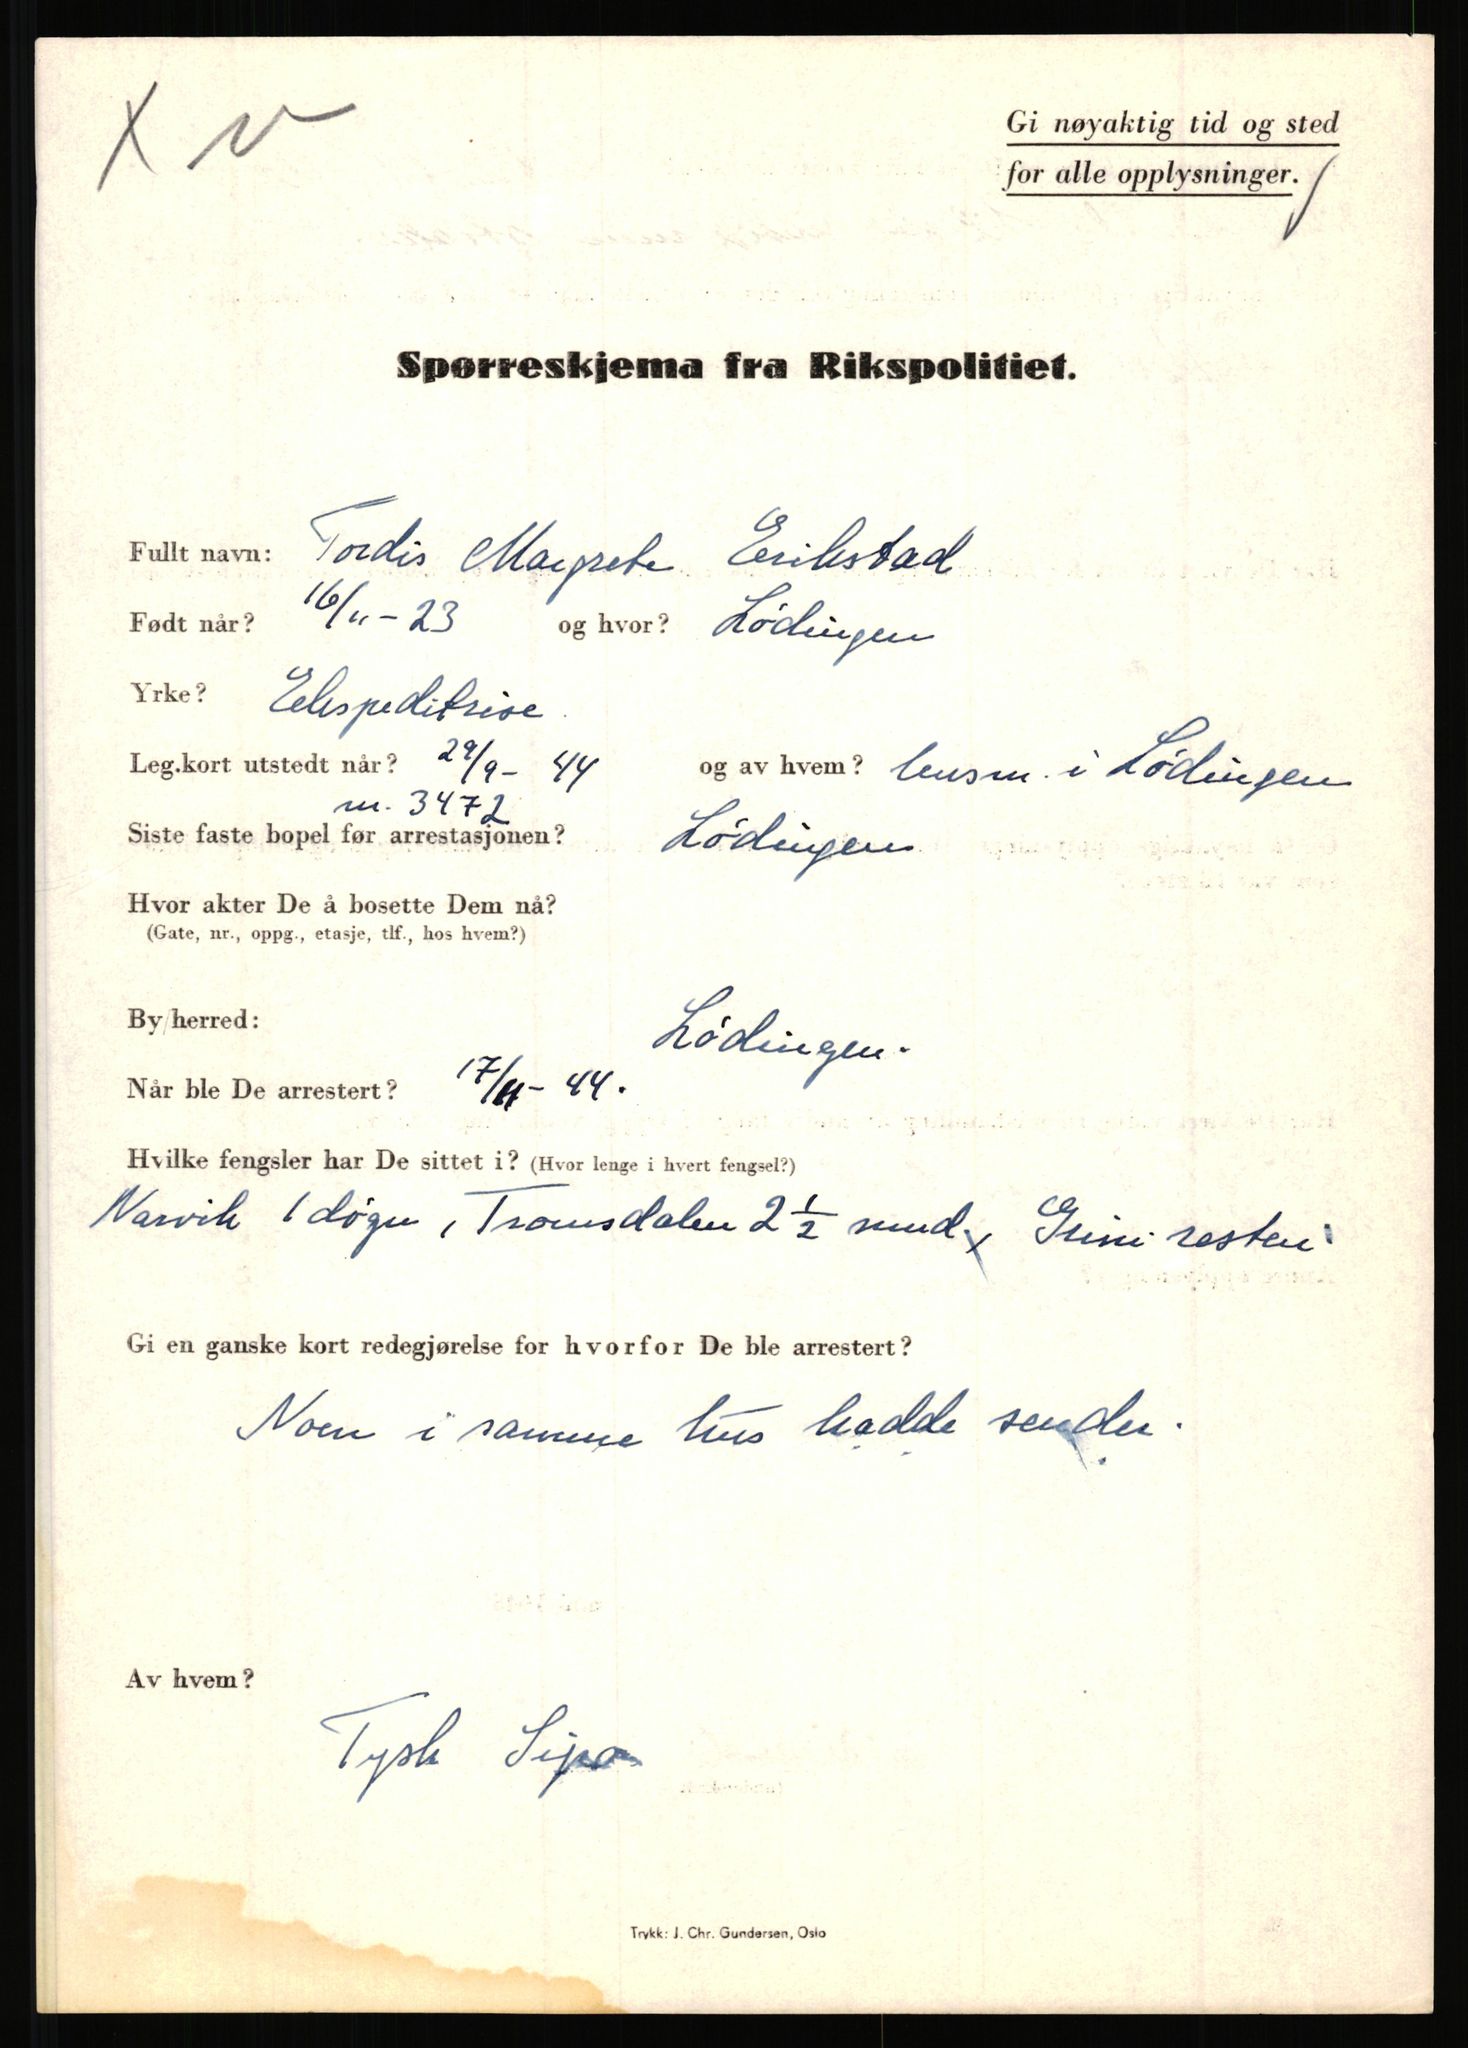 X V
Gi nøyaktig tid og sted
for alle opplysninger.
Spørreskjema fra Rikspolitiet.
Fullt navn: Tordis Margrete Erikstad
Født når? 16/11-23 og hvor? Lødingen
Yrke? Ekspeditrise.
Leg.kort utstedt når? 29/9- 44 og av hvem? lensm. i Lødingen
nr. 3472
Siste faste bopel før arrestasjonen? Lødingen
Hvor akter De å bosette Dem nå?
(Gate, nr., oppg., etasje, tlf., hos hvem?)
By/herred: Lødingen.
Når ble De arrestert? 17/11-44.
Hvilke fengsler har De sittet i? (Hvor lenge i hvert fengsel?)
Narvik 1 døgn, Tromsdalen 2 1/2 mnd., Grini resten.
Gi en ganske kort redegjørelse for hvorfor De ble arrestert?
Noen i samme hus hadde sender.
Av hvem?
Tysk Sipo
Trykk: J. Chr. Gundersen, Oslo